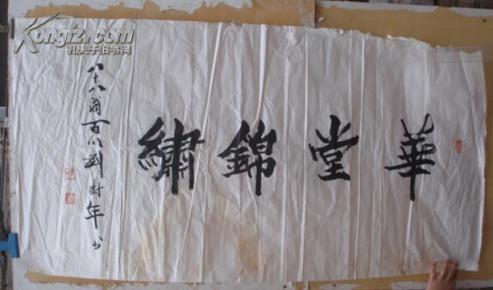 華堂錦繡
八十八翁百川劉財年书
Kongfz.com
孔夫子旧书网